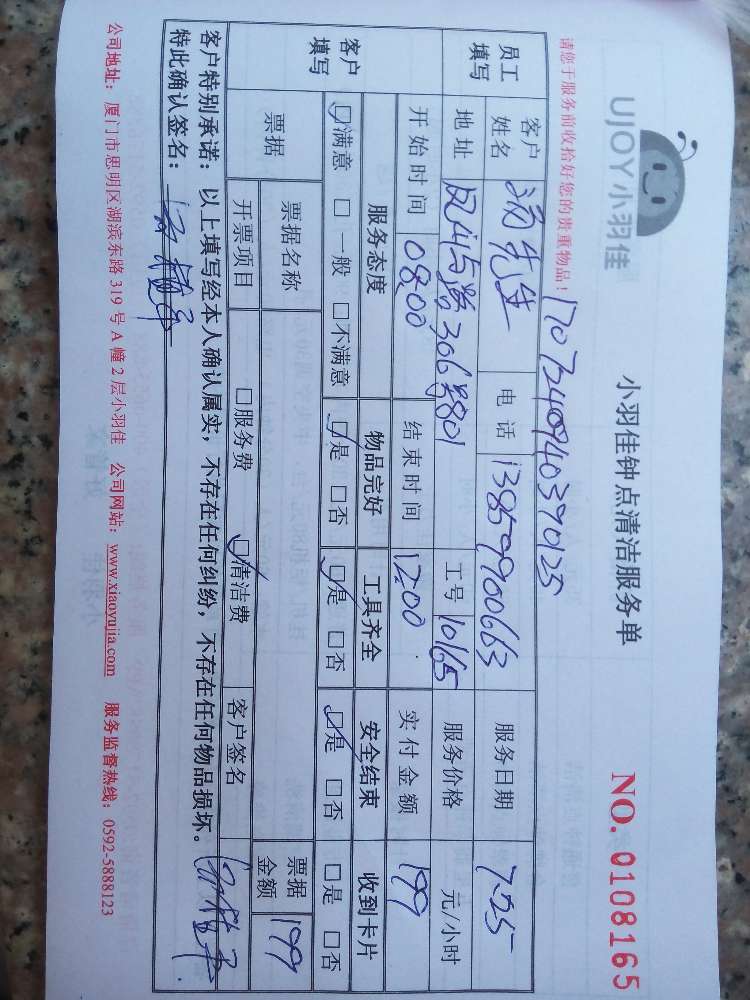 UJOY小羽佳
小羽佳钟点清洁服务单
NO. 0108165
请您于服务前收拾好您的贵重物品！
员工填写
客户姓名 汤先生 电话 13859900663 服务日期 7.25
地址 工号 10165 服务价格 元/小时
开始时间 08:00 结束时间 12:00 实付金额 199
客户填写
服务态度 物品完好 工具齐全 安全结束 收到卡片
☑满意 □一般 □不满意 ☑是 □否 ☑是 □否 ☑是 □否 □是 □否
票据 票据名称 客户签名 票据金额 199
开票项目 □服务费 ☑清洁费
客户特别承诺：以上填写经本人确认属实，不存在任何纠纷，不存在任何物品损坏。
特此确认签名：
公司地址：厦门市思明区湖滨东路 319 号 A 幢 2 层小羽佳 公司网站：www.xiaoyujia.com 服务监督热线：0592-5888123